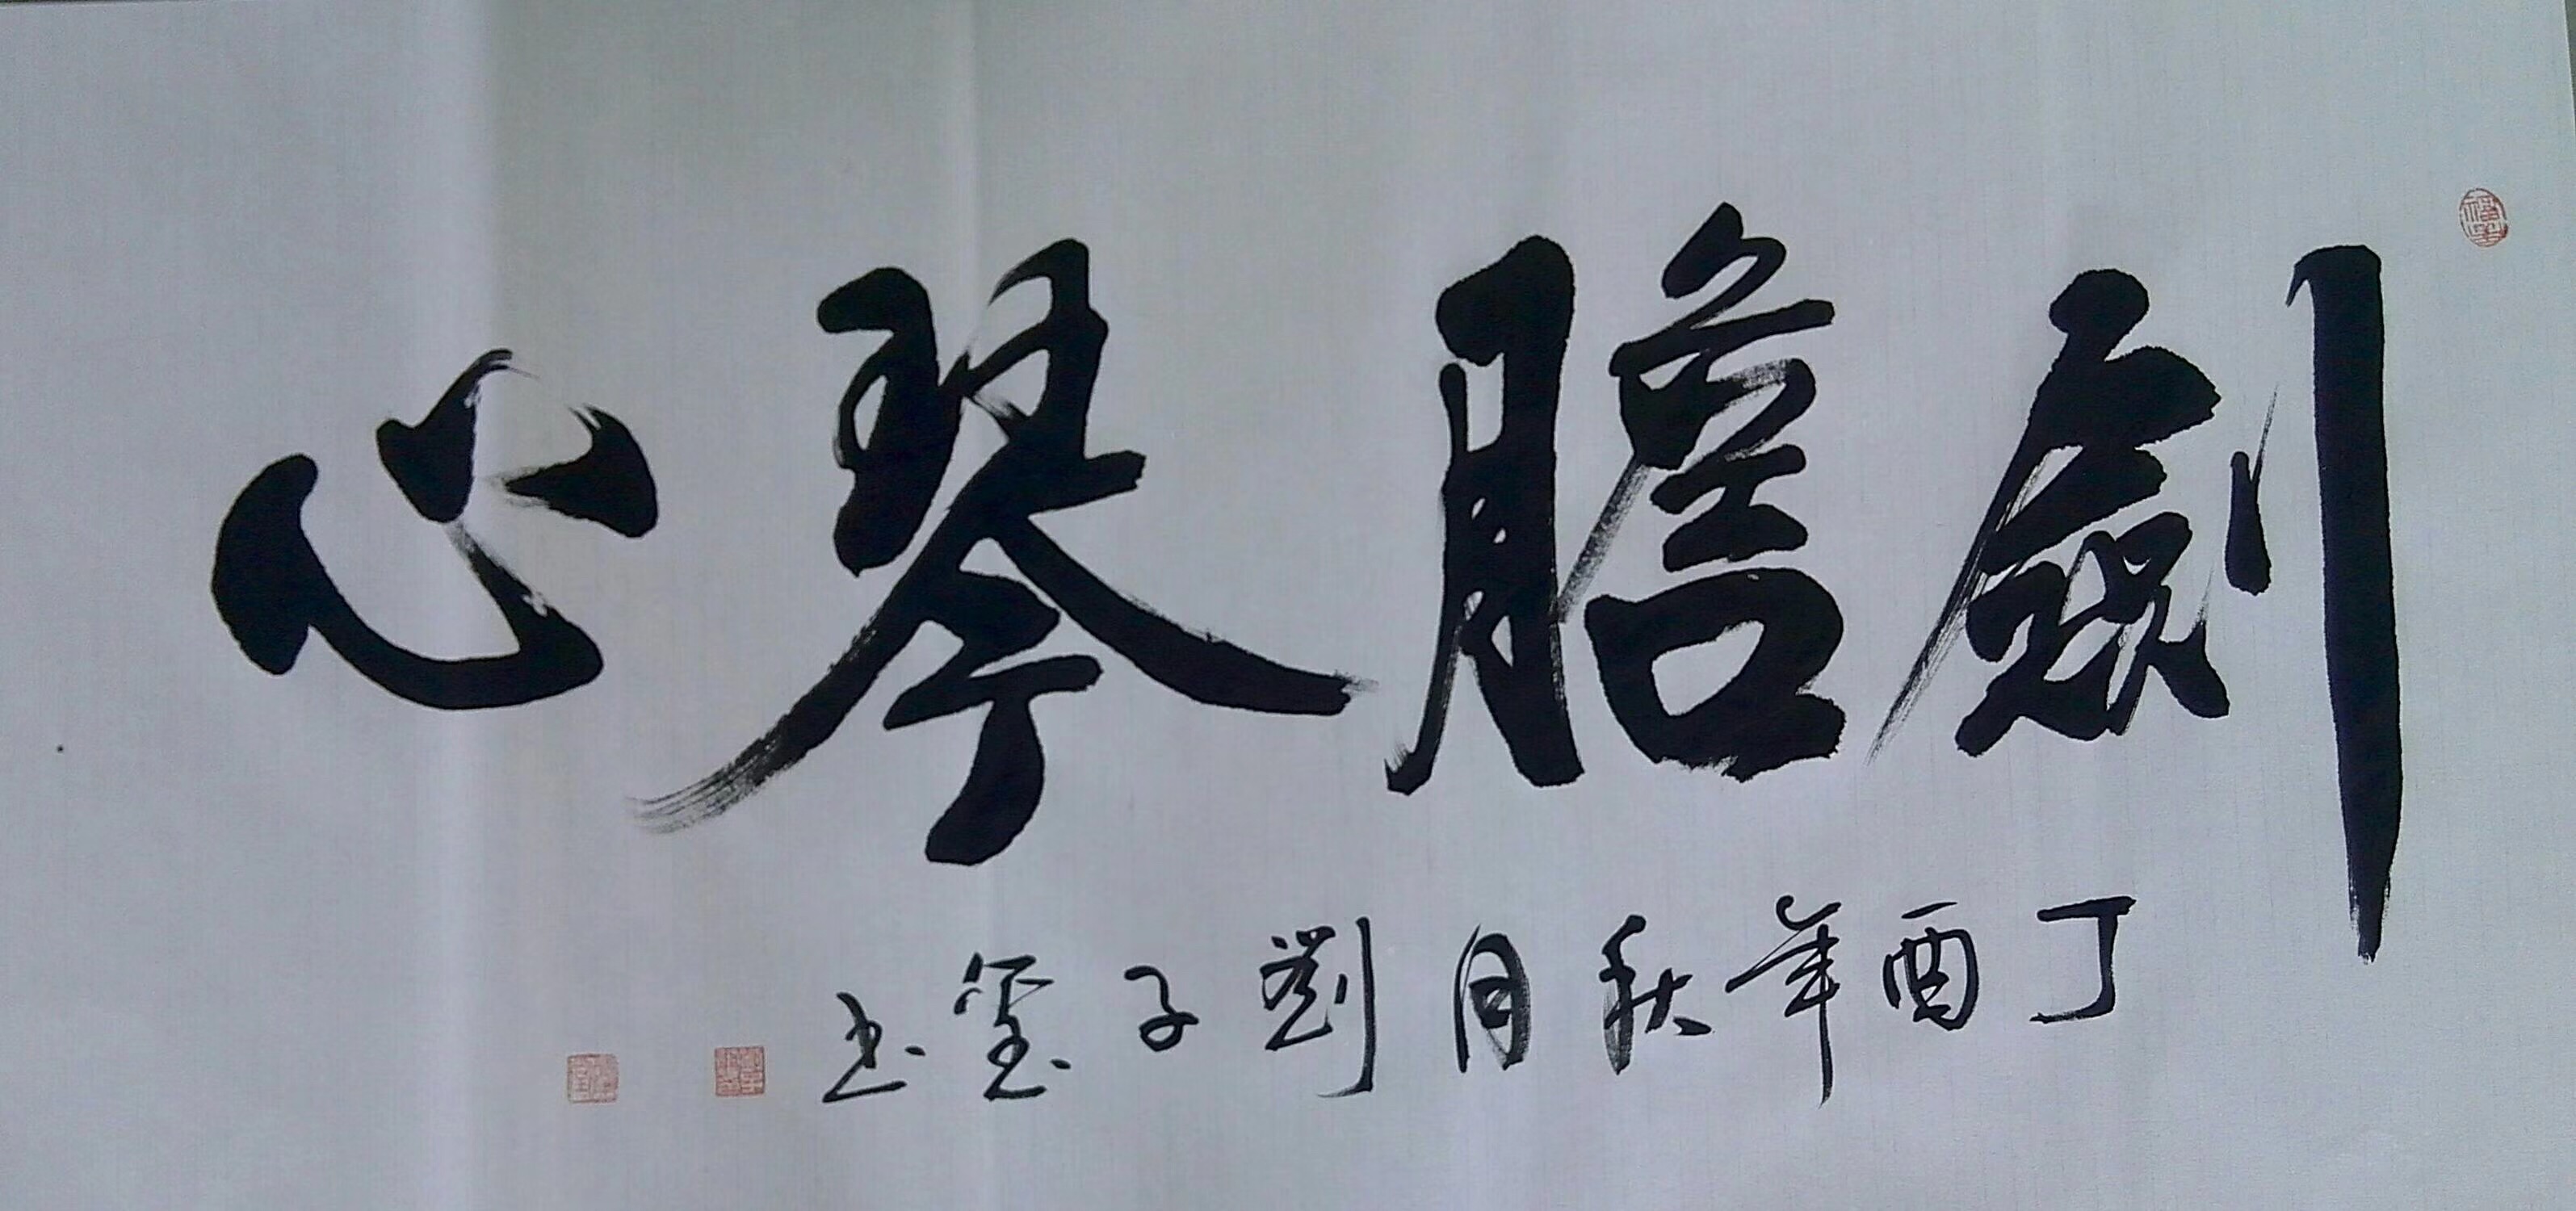 劍膽琴心
丁酉年秋月劉子玺书